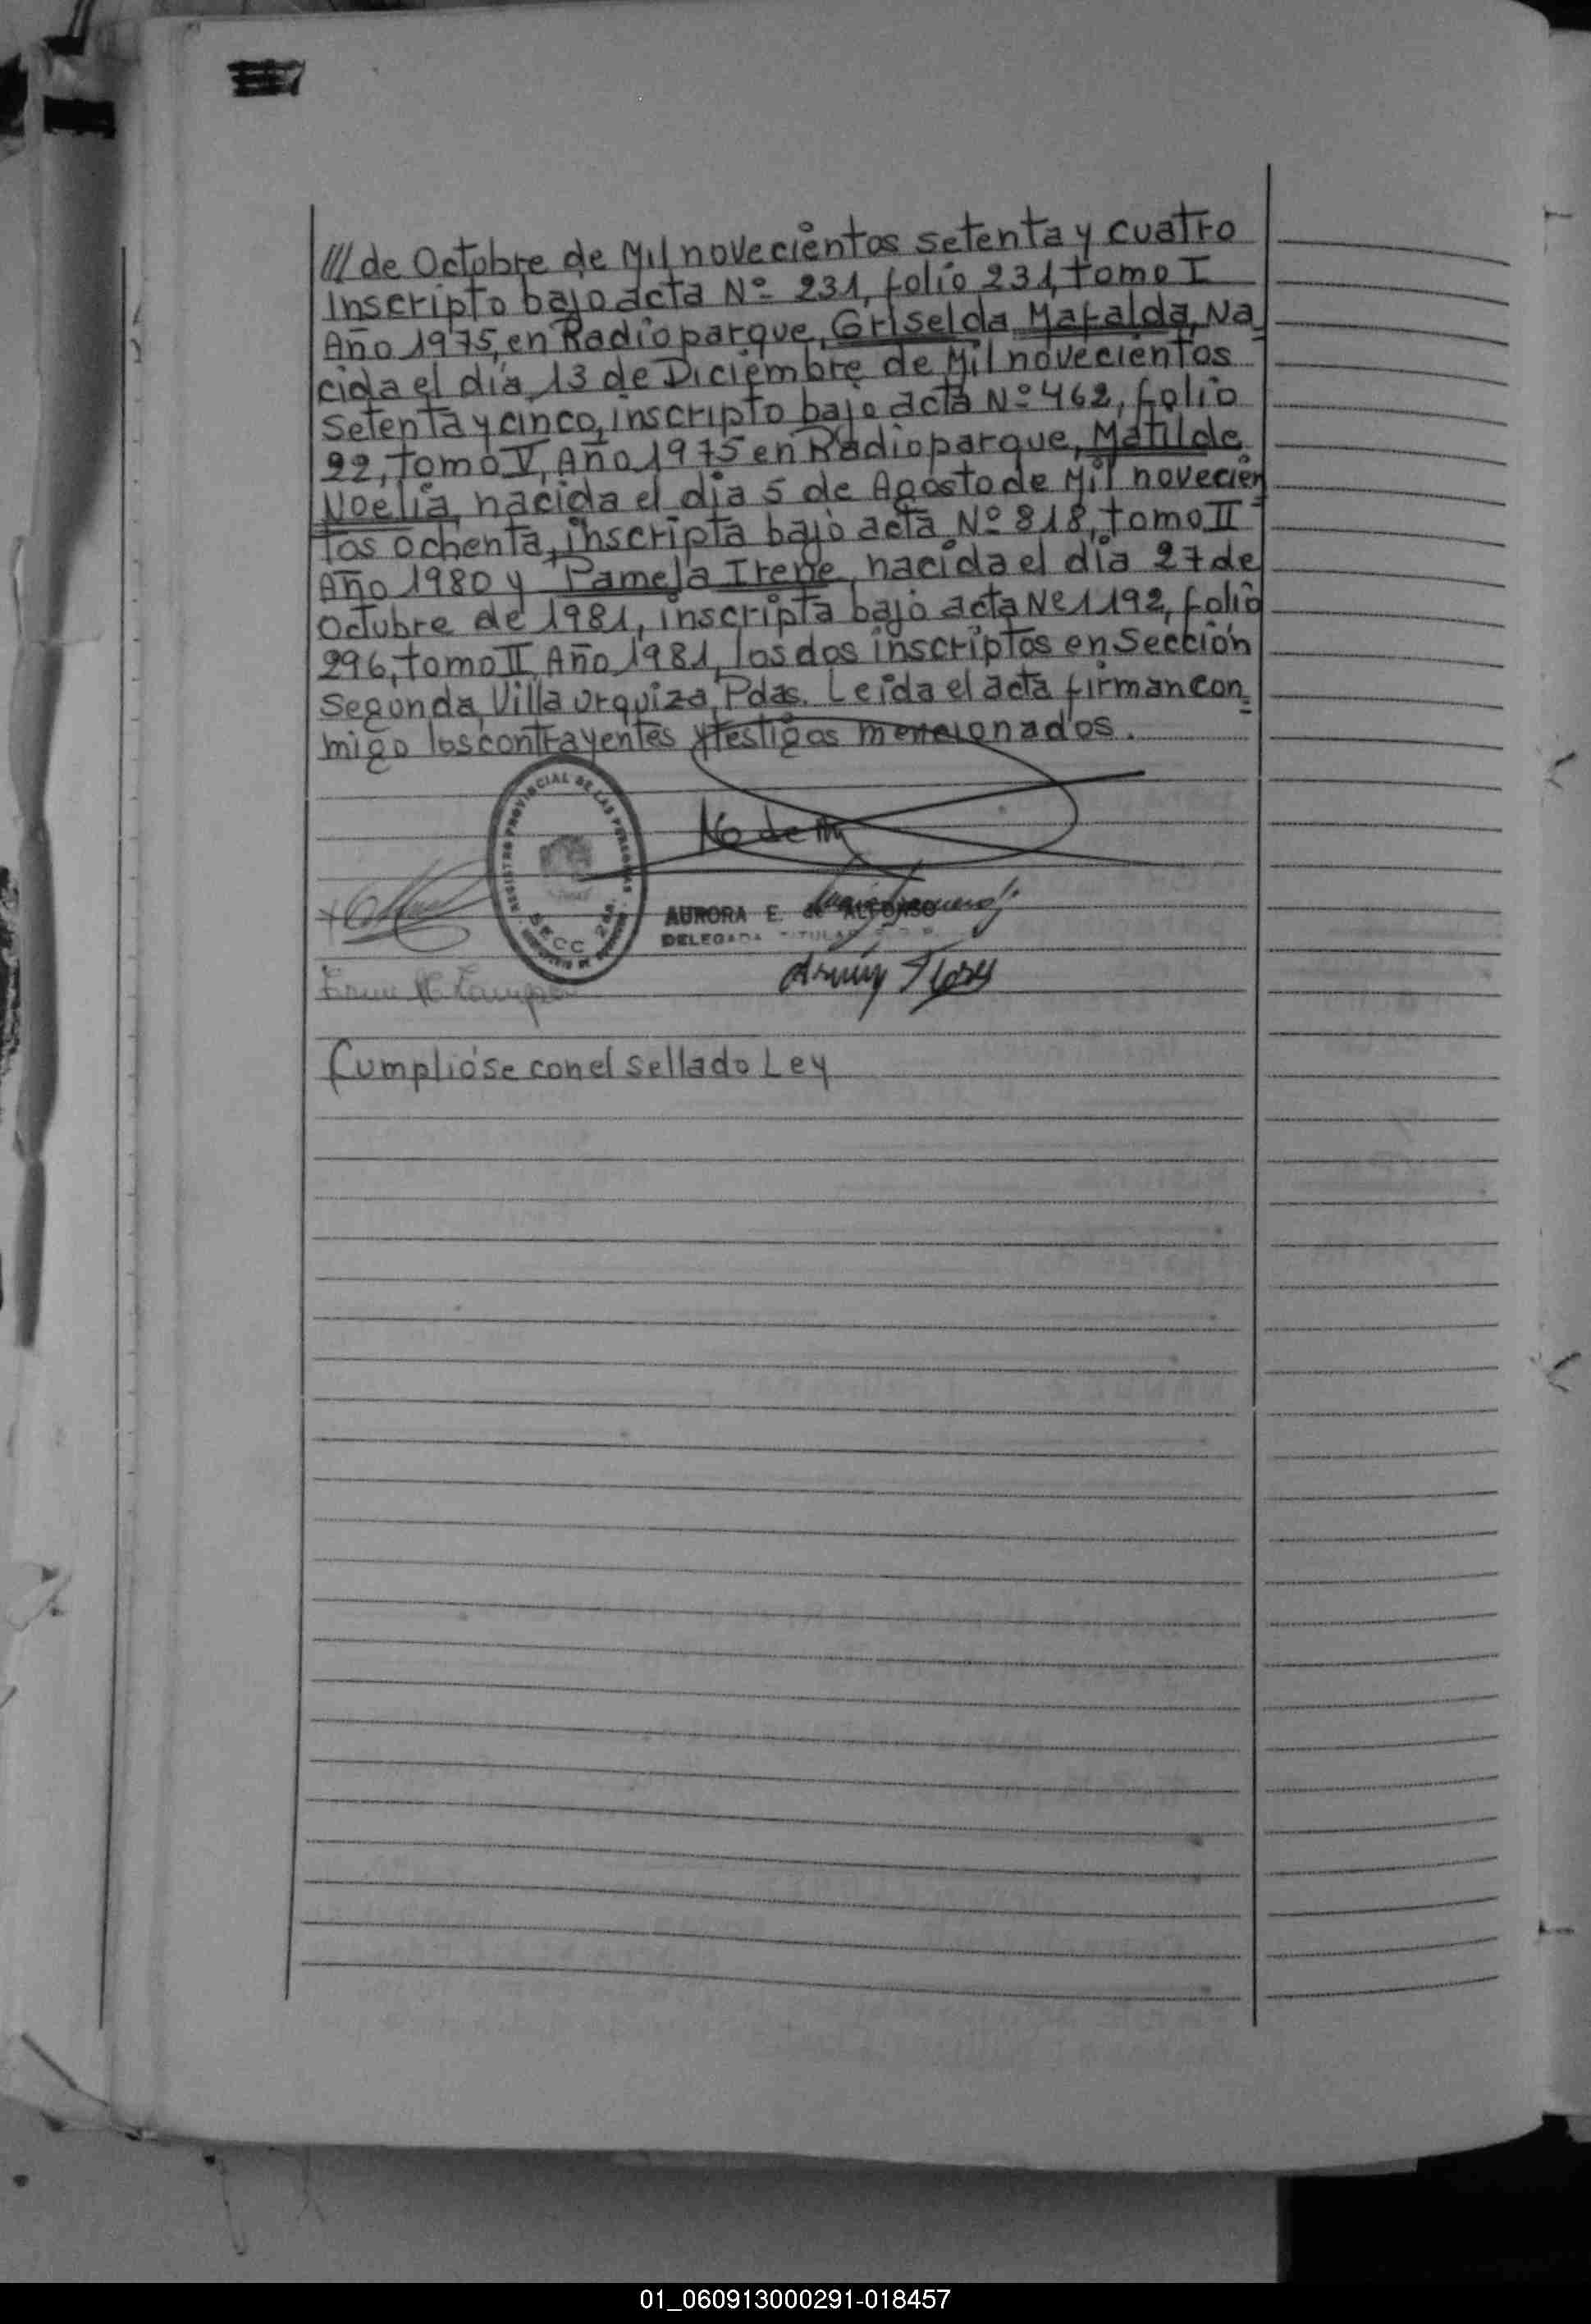 /// de Octubre de Mil novecientos setenta y cuatro
Inscripto bajo acta Nº 231, folio 231, tomo I
Año 1975, en Radioparque, Griselda Mafalda, Na
cida el día 13 de Diciembre de Mil novecientos
Setenta y cinco, inscripto bajo acta Nº 462, folio
22, tomo V, Año 1975 en Radioparque, Matilde
Noelia, nacida el dia 5 de Agosto de Mil novecien
tos ochenta, inscripta bajo acta Nº 818, tomo II
Año 1980 y Pamela Irene, nacida el día 27 de
Octubre de 1981, inscripta bajo acta Nº 1192, folio
296, tomo II Año 1981, los dos inscriptos en Sección
Segunda, Villa Urquiza, Pdas. Leída el acta firman con
migo los contrayentes y testigos mencionados.
REGISTRO PROVINCIAL DE LAS PERSONAS
SECC 2da.
AURORA E. de ALFONSO
DELEGADA TITULAR
Flores
Cumplióse con el sellado Ley
01_060913000291-018457